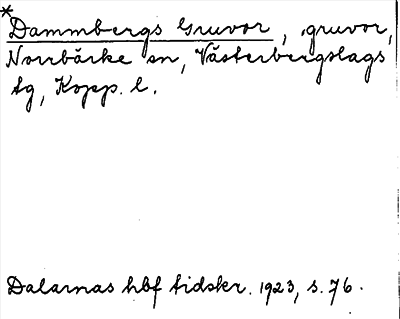 *Dammbergs Gruvor, gruvor,
Norrbärke sn, Västerbergslags
tg, Kopp. l.
Dalarnas hbf tidskr. 1923, s. 76.